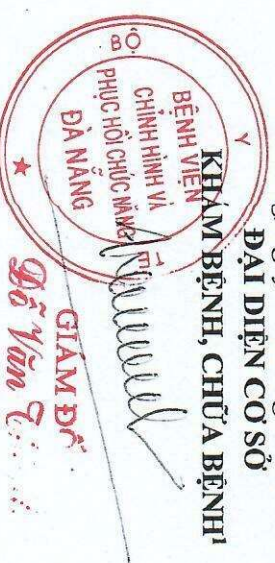 ĐẠI DIỆN CƠ SỞ
KHÁM BỆNH, CHỮA BỆNH¹
BỘ Y TẾ
BỆNH VIỆN
CHỈNH HÌNH VÀ
PHỤC HỒI CHỨC NĂNG
ĐÀ NẴNG
GIÁM ĐỐC
Đỗ Văn